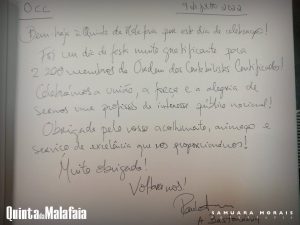 OCC 9 Julho 2022
Bem haja à Quinta da Malafaia por este dia de celebração!
Foi um dia de festa muito gratificante para
2 200 membros da Ordem dos Contabilistas Certificados!
Celebrámos a união, a força e a alegria de
sermos uma profissão de interesse público nacional!
Obrigada pelo vosso acolhimento, animação e
serviço de excelência que nos proporcionou!
Muito obrigada!
Voltaremos!
A Bastonária
Quinta da Malafaia
SAMUARA MORAIS